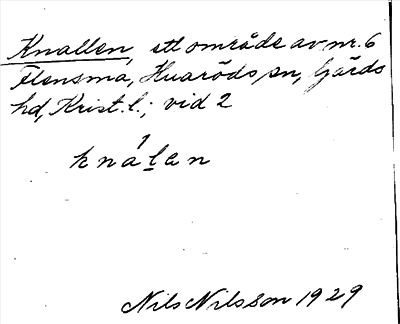 Knallen, ett område av nr. 6
Elensma, Huaröds sn, Gärds
hd, Krist. l.; vid 2
1
knalan
Nils Nilsson 1929